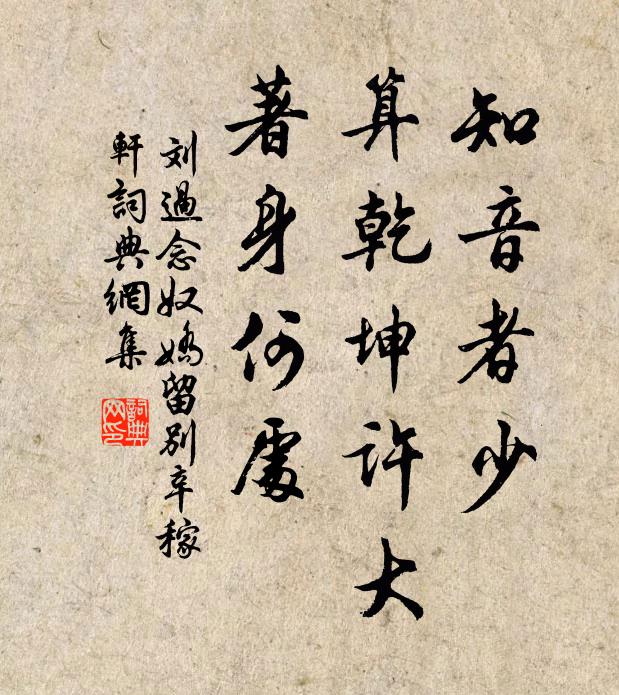 知音者少
算乾坤許大
著身何處
刘過念奴嬌留別辛稼
軒詞典網集
詞典
网印